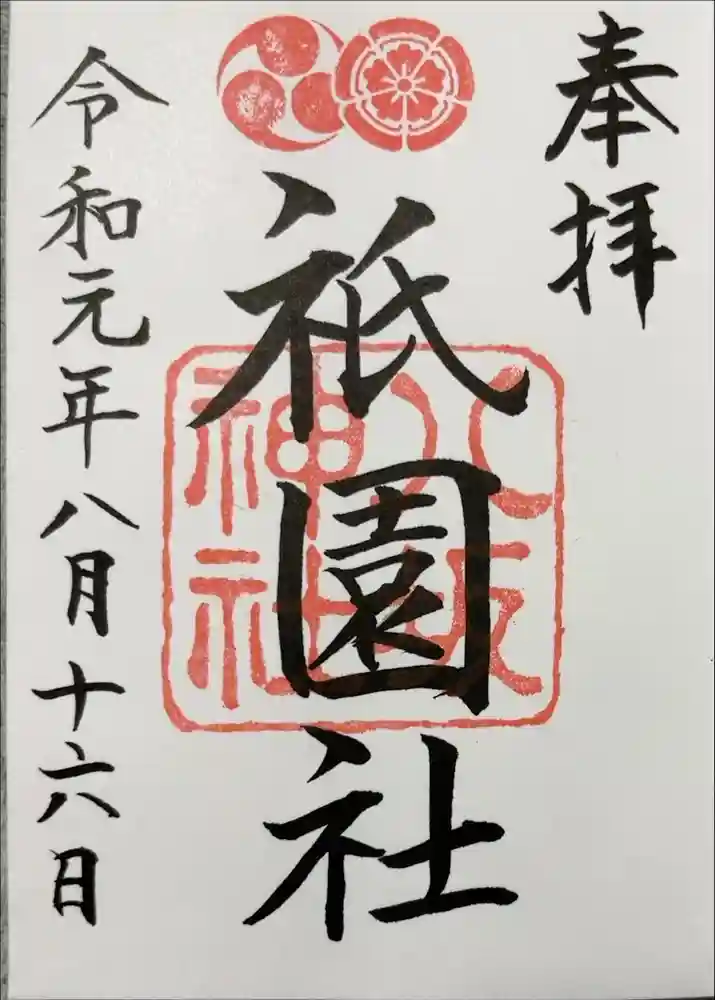 奉拝
祇園社
八坂
神社
令和元年八月十六日